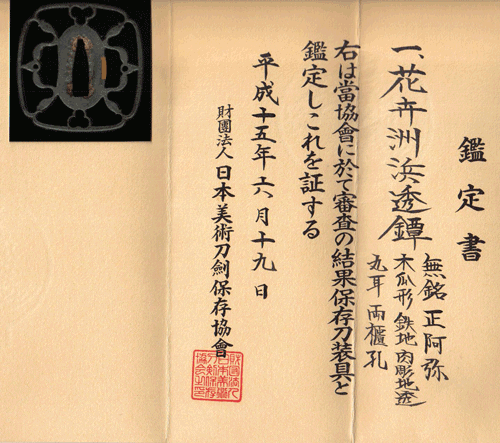 鑑定書
一、花卉洲浜透鐔
無銘 正阿弥
木瓜形 鉄地 肉彫地透
丸耳 両櫃孔
右は當協會に於て審査の結果保存刀装具と
鑑定しこれを証する
平成十五年六月十九日
財團法人 日本美術刀劍保存協會